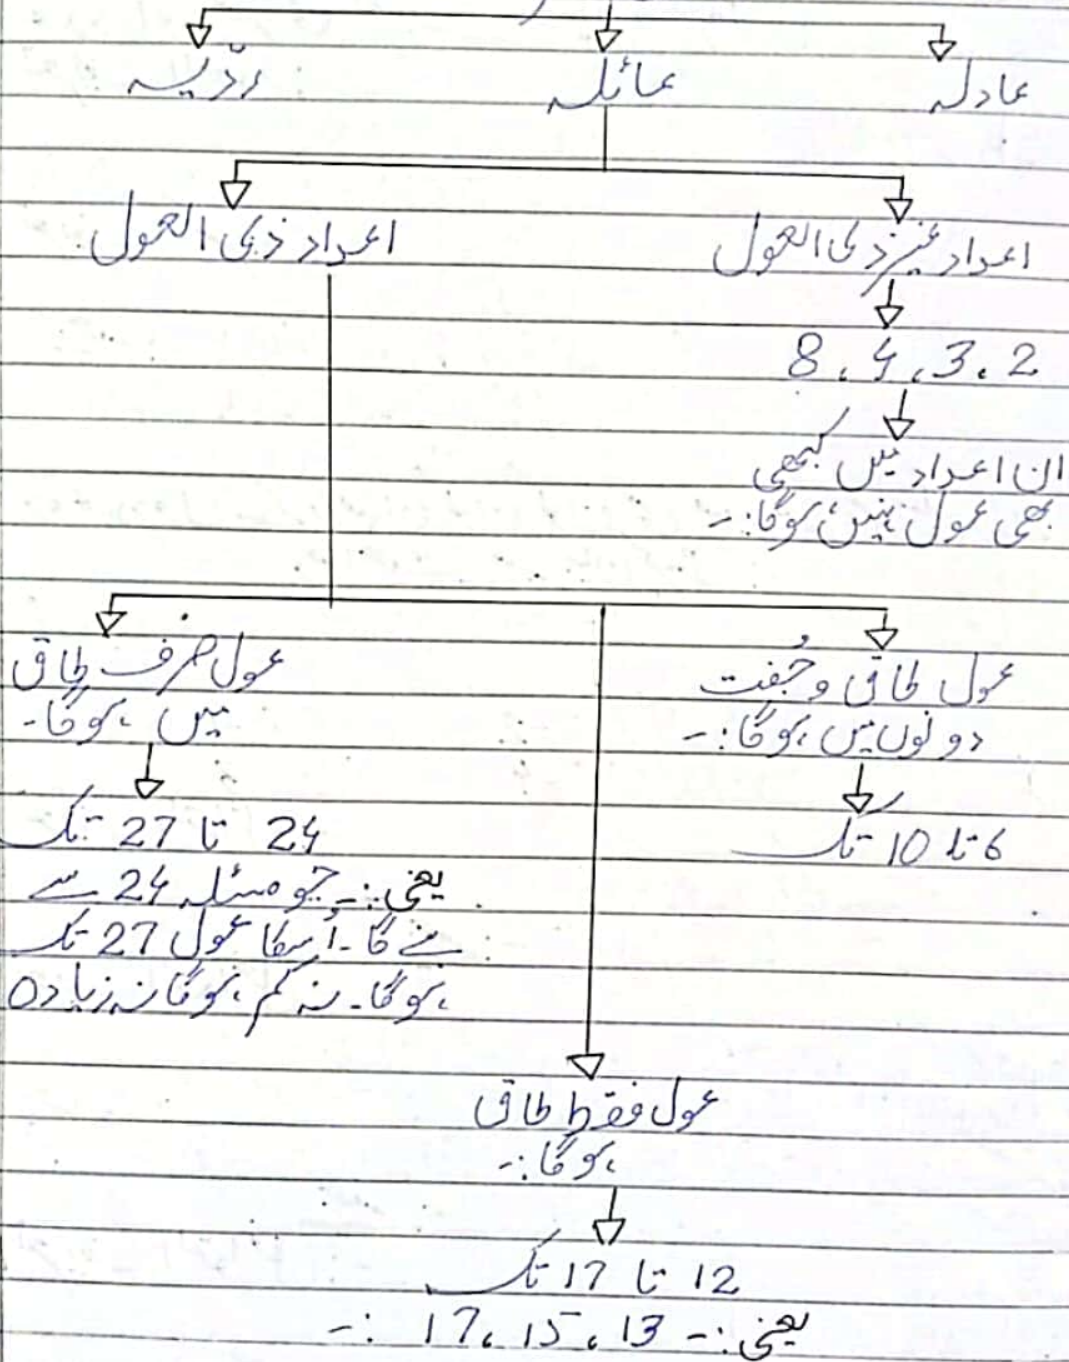 عادلہ
عائلہ
ردّیہ
اعداد غیر ذی العول
اعداد ذی العول
2، 3، 4، 8
ان اعداد میں کبھی
بھی عول نہیں ہوگا:-
عول طاق و جُفت
دونوں میں ہوگا:-
6 تا 10 تک
عول صرف طاق
میں ہوگا۔
24 تا 27 تک
یعنی:- جو مسئلہ 24 سے
بنے گا۔ اُسکا عول 27 تک
ہوگا۔ نہ کم ہوگا نہ زیادہ
عول فقط طاق
ہوگا:-
12 تا 17 تک
یعنی:- 13، 15، 17 :-